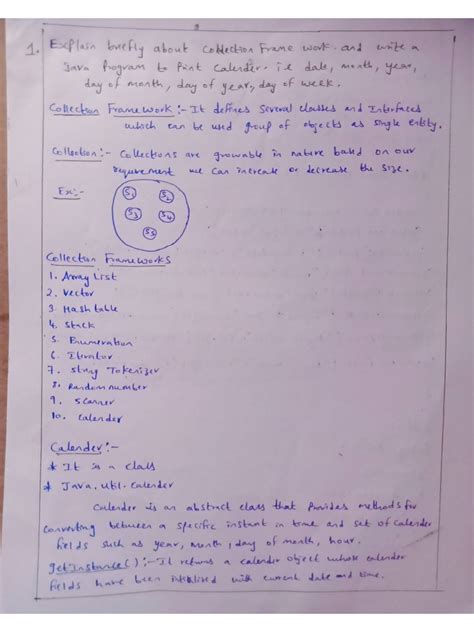 1. Explain briefly about Collection Frame work and write a
Java Program to Print Calender. i.e date, month, year,
day of month, day of year, day of week.
Collection Framework :- It defines several classes and Interfaces
which can be used group of objects as single entity.
Collection :- Collections are growable in nature based on our
requirement we can increase or decrease the size.
Ex:-
S1 S2
S3 S4
S5
Collection Frameworks
1. Array List
2. Vector
3. Hash table
4. Stack
5. Enumeration
6. Iterator
7. String Tokenizer
8. Random number
9. Scanner
10. Calender
Calender :-
* It is a class
* Java. Util. Calender
Calender is an abstract class that provides methods for
converting between a specific instant in time and set of calender
fields such as year, month, day of month, hour.
getInstance() :- It returns a calender object whose calender
fields have been initialized with current date and time.